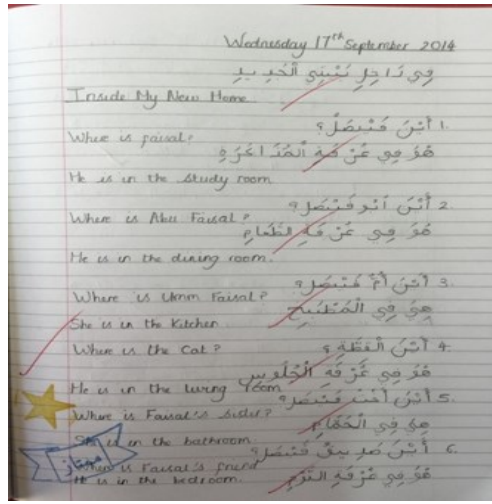 Wednesday 17th September 2014
فِي دَاخِلِ بَيْتِي الْجَدِيدِ
Inside My New Home
1. أَيْنَ فَيْصَلُ؟
Where is faisal?
هُوَ فِي غُرْفَةِ الْمُذَاكَرَةِ
He is in the study room
2. أَيْنَ أَبُو فَيْصَل؟
Where is Abu Faisal?
هُوَ فِي غُرْفَةِ الطَّعَامِ
He is in the dining room.
3. أَيْنَ أُمُّ فَيْصَل؟
Where is Umm Faisal?
هِيَ فِي الْمَطْبَخِ
She is in the Kitchen
4. أَيْنَ الْقِطَّة؟
Where is the Cat?
هُوَ فِي غُرْفَةِ الْجُلُوسِ
He is in the living room
5. أَيْنَ أُخْتُ فَيْصَل؟
Where is Faisal's sister?
هِيَ فِي الْحَمَّامِ
She is in the bathroom
6. أَيْنَ صَدِيقُ فَيْصَل؟
Where is Faisal's friend
هُوَ فِي غُرْفَةِ النَّوْمِ
He is in the bedroom.
ممتاز